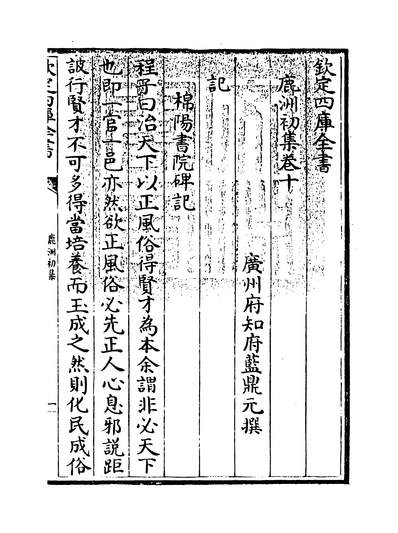 欽定四庫全書
鹿洲初集卷十
廣州府知府藍鼎元撰
記
棉陽書院碑記
程子曰治天下以正風俗得賢才為本余謂非必天下
也即一官一邑亦然欲正風俗必先正人心息邪説距
詖行賢才不可多得當培養而玉成之然則化民成俗
欽定四庫全書
鹿洲初集
一